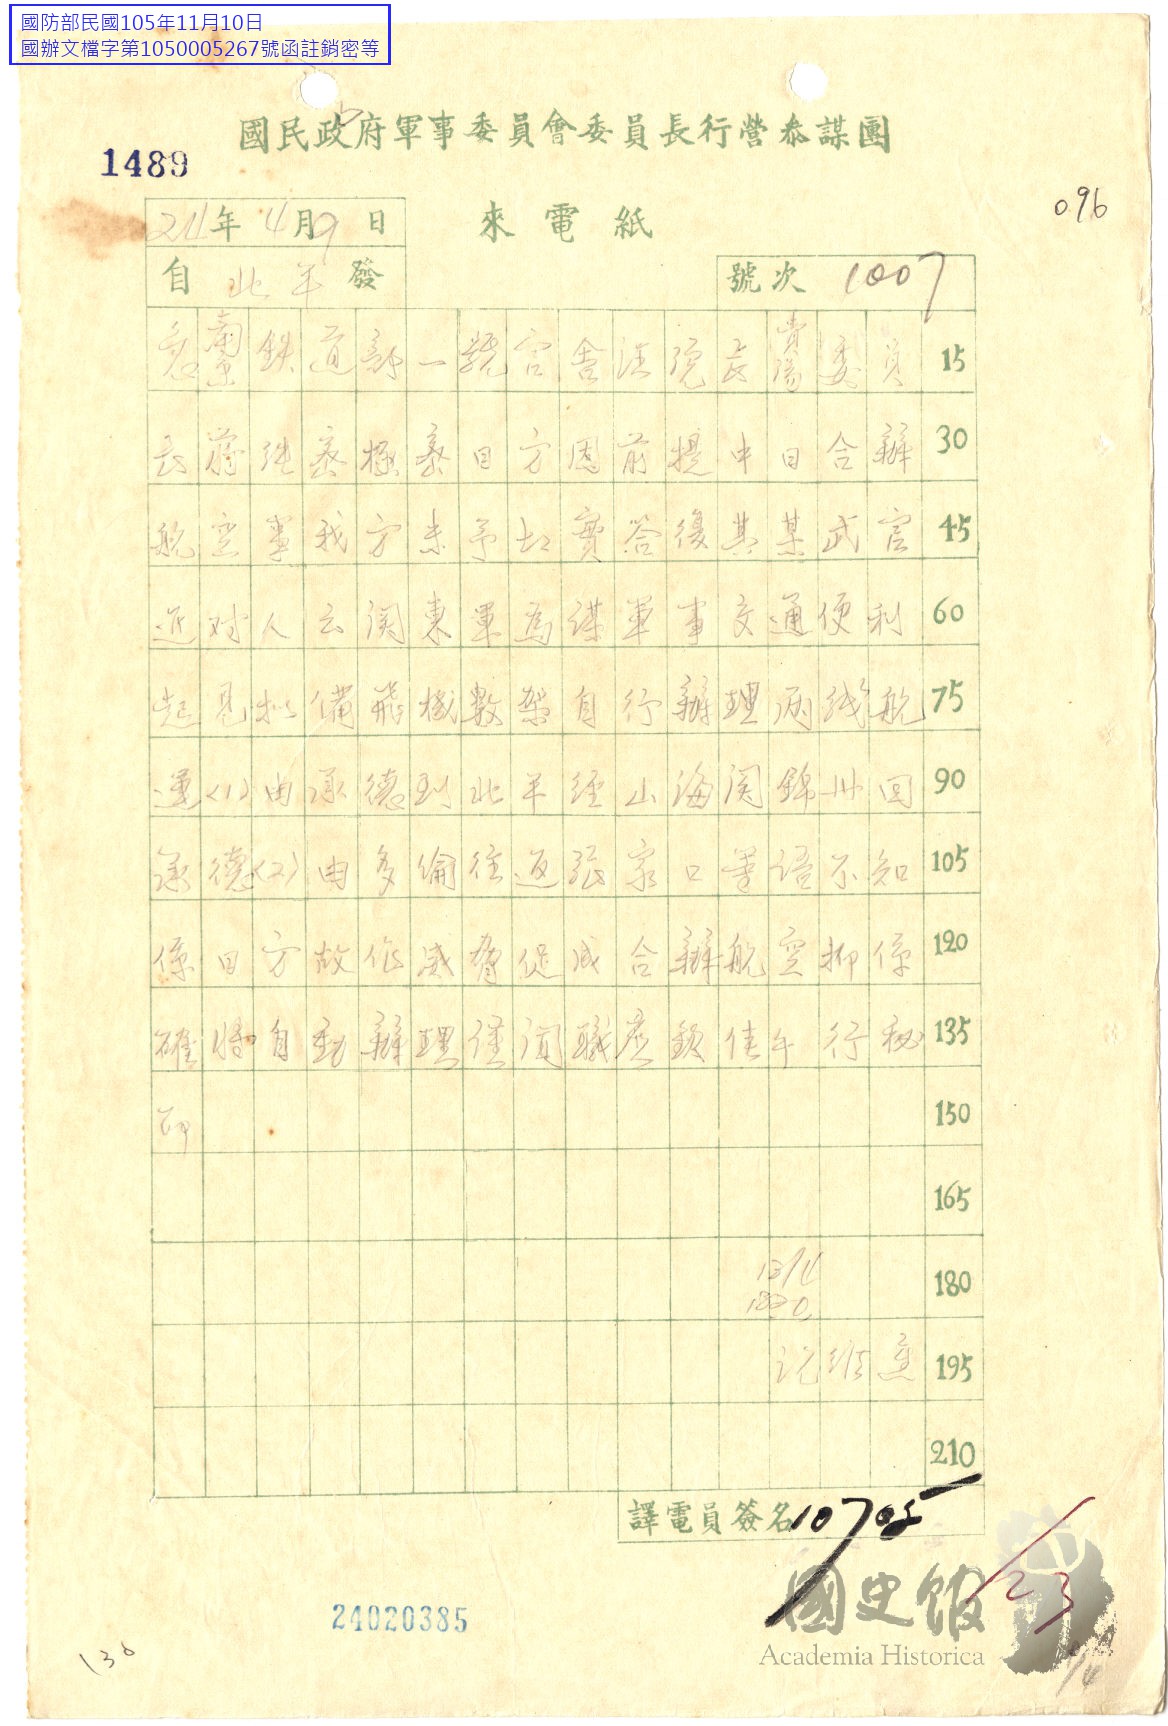 國防部民國105年11月10日
國辦文檔字第1050005267號函註銷密等
國民政府軍事委員會委員長行營參謀團
1489
096
24年4月9日
來電紙
自北平發
號次 1007
急南京鉄道部一號官舍汪院長貴陽委員 15
長蔣維密極密日方因前提中日合辦 30
航空事我方未予切實答復其某武官 45
近对人云関東軍為謀軍事交通便利 60
起見擬備飛機數架自行辦理両线航 75
運(1)由承德到北平經山海関錦州回 90
承德(2)由多倫往返張家口等語不知 105
係日方故作威脅促成合辦航空抑係 120
確將自動辦理僅聞職應欽佳午行秘 135
印 150
165
13/4 180
195
210
譯電員簽名
10705
24020385
136
23
國史館
Academia Historica